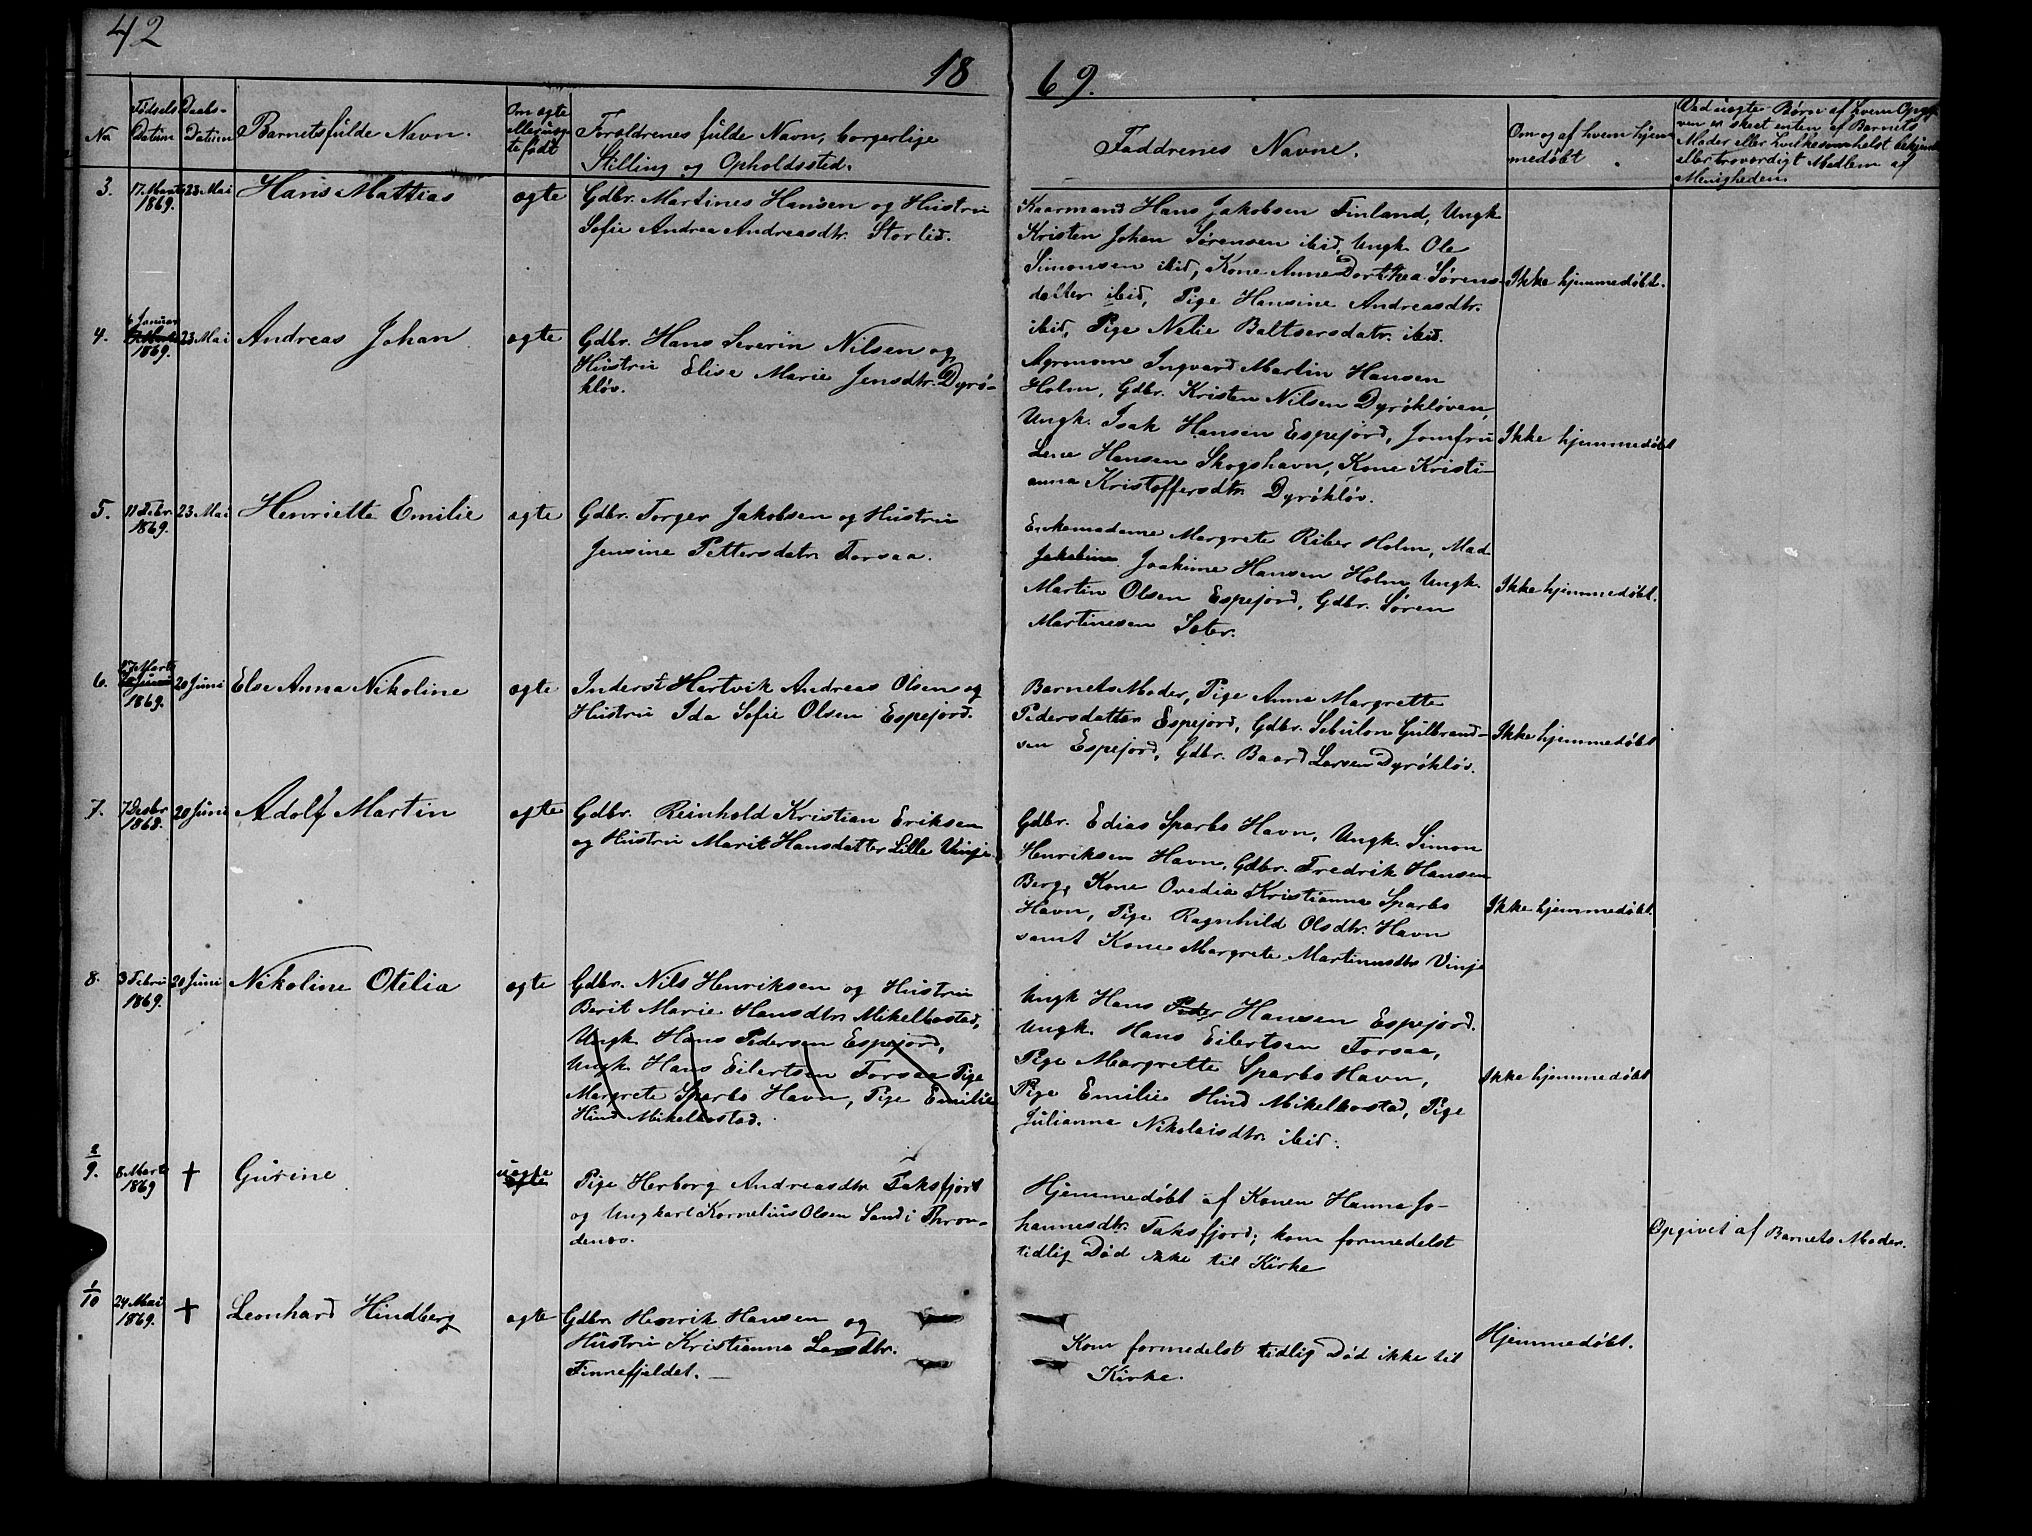 42
18
69.
No
Fødsels Datum
Daabs-Datum
Barnets fulde Navn.
Om ægte eller uægte født
Forældrenes fulde Navn, borgerlige
Stilling og Opholdssted.
Faddrenes Navne.
Om og af hvem hjemmedøbt.
Ved uægte Børn af hvem Opgiven er skeet enten af Barnets
Moder eller hvilkesomhelst bekjendt
eller troværdigt Medlem af
Menigheden.
3. 17. Marts 1869. 23 Mai Hans Mattias ægte
Gdbr. Martines Hansen og Hustru
Sofie Andrea Andreasdtr. Storlid.
Kaarmand Hans Jakobsen Finland, Ungk
Kristen Johan Sørensen ibid, Ungk. Ole
Simonsen ibid, Kone Anne Dorthea Sørens-
datter ibid, Pige Hansine Andreasdtr.
ibid, Pige Nelie Baltsersdatr. ibid.
Ikke hjemmedøbt.
4. 6 Januar 1869. 23 Mai Andreas Johan ægte
Gdbr. Hans Severin Nilsen og
Hustru Elise Marie Jensdtr. Dyrø-
kløv.
Agronom Ingvard Martin Hansen
Holm, Gdbr. Kristen Nilsen Dyrøkløven,
Ungk. Isak Hansen Espejord, Jomfru
Lene Hansen Skogshavn, Kone Kristi-
anna Kristoffersdtr. Dyrøkløv.
Ikke hjemmedøbt
5. 11 Febr. 1869. 23 Mai Henriette Emilie ægte
Gdbr. Torger Jakobsen og Hustru
Jensine Pettersdatr. Forsaa.
Enkemadame Margrete Riber Holm, Mad
Jakobine Joakime Hansen Holm, Ungk.
Martin Olsen Espejord, Gdbr. Søren
Martinesen Sæter.
Ikke hjemmedøbt.
6. 27 Marts 20 Juni 1869. 20 Juni Else Anna Nikoline ægte
Inderst Hartvik Andreas Olsen og
Hustru Ida Sofie Olsen Espejord.
Barnets Moder, Pige Anne Margrette
Pedersdatter Espejord, Gdbr. Sebulon Gulbrand-
sen Espejord, Gdbr. Baard Larsen Dyrøkløv.
Ikke hjemmedøbt
7. 7 Decbr 1868. 20 Juni Adolf Martin ægte
Gdbr. Reinhold Kristian Eriksen
og Hustru Marit Hansdatter Lille Vinje.
Gdbr. Edias Sparbo Havn, Ungk. Simon
Henriksen Havn, Gdbr. Fredrik Hansen
Berg, Kone Ovedia Kristianne Sparbo
Havn, Pige Ragnhild Olsdtr. Havn
samt Kone Margrete Martinusdtr Vinje
Ikke hjemmedøbt.
8. 3 Febru 1869. 20 Juni Nikoline Otelia ægte
Gdbr. Nils Henriksen og Hustru
Berit Marie Hansdtr. Mikelbostad,
Ungk. Hans Pedersen Espejord,
Ungk Hans Eilertsen Forsaa Pige
Margrete Sparbo Havn, Pige Emilie
Hind Mikelbostad.
Ungk Hans Peder Hansen Espejord.
Ungk. Hans Eilertsen Forsaa,
Pige Margrette Sparbo Havn,
Pige Emilie Hind Mikelbostad, Pige
Julianna Nikolaisdtr. ibid.
Ikke hjemmedøbt
9. 8 Marts 1869 † Gurine uægte ægte
Pige Herborg Andreasdtr. Faksfjord
og Ungkarl Kornelius Olsen Sand i Thron-
denes.
Hjemmedøbt af Konen Hanna Jo-
hannesdtr. Faksfjord; kom formedelst
tidlig Død ikke til Kirke
Opgivet af Barnets Moder.
1/10 24 Mai 1869. † Leonhard Hindberg ægte
Gdbr. Henrik Hansen og
Hustru Kristianna Larsdtr.
Finnefjeldet. —
Kom formedelst tidlig Død ikke til
Kirke.
Hjemmedøbt.